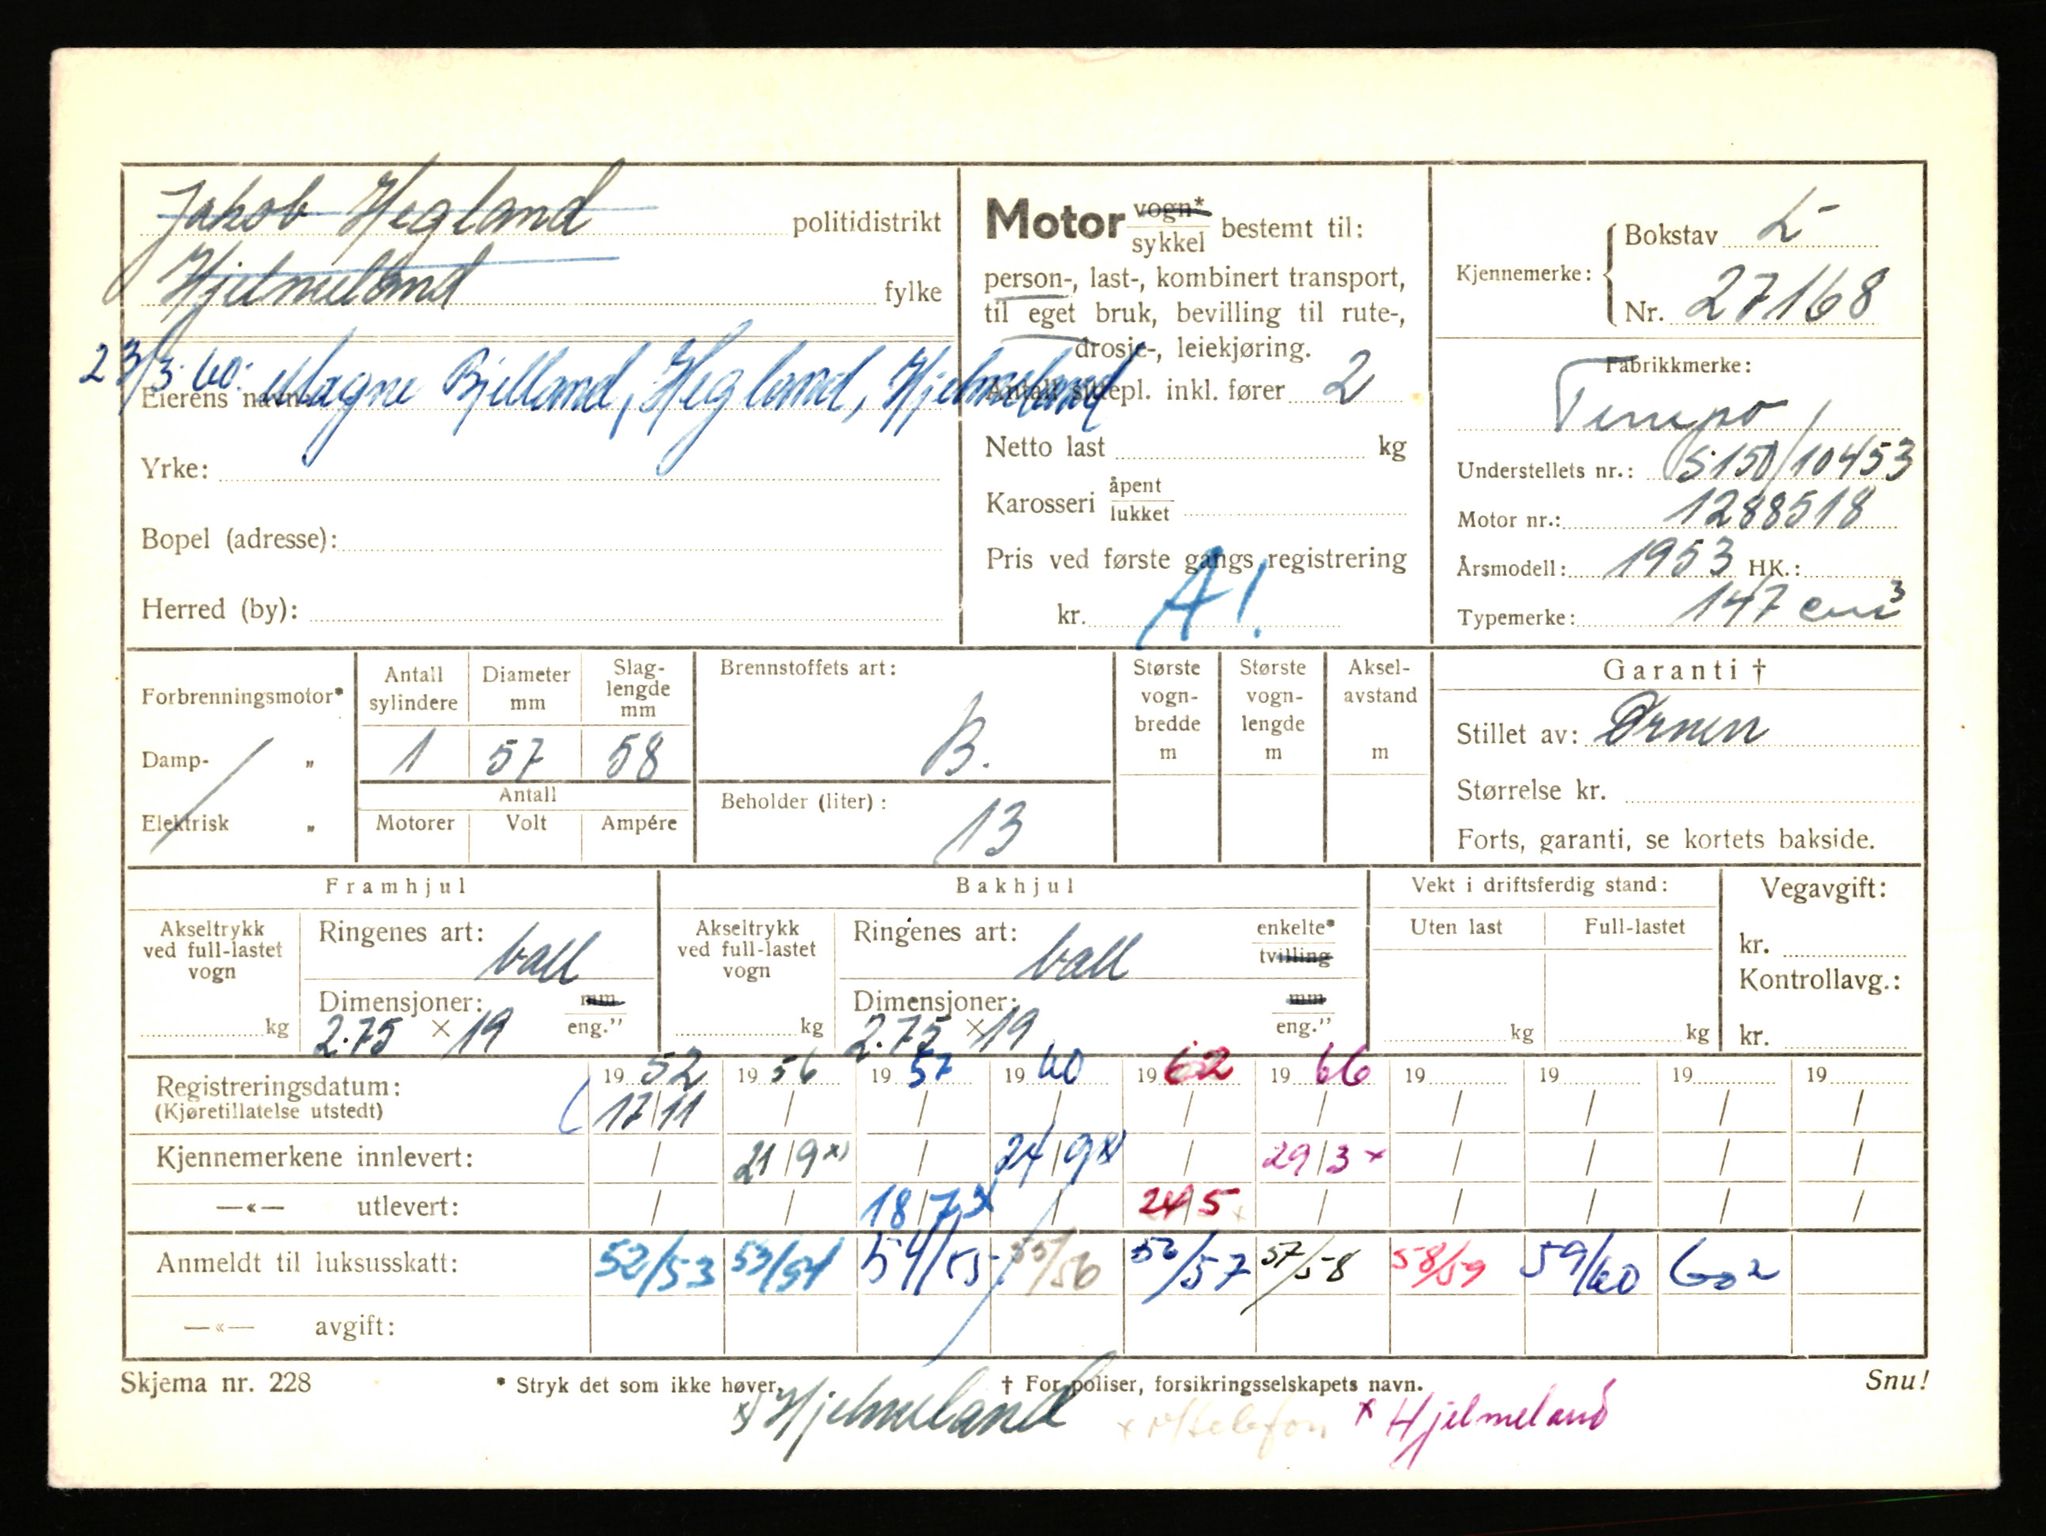 Jakob Hegland politidistrikt
Hjelmeland fylke
23/3-60: Magne Bjelland, Hegland, Hjelmeland
Eierens navn
Yrke:
Bopel (adresse):
Herred (by):
Motor vogn* sykkel bestemt til:
person-, last-, kombinert transport,
til eget bruk, bevilling til rute-,
drosje-, leiekjøring.
Antall sittepl. inkl. fører 2
Netto last kg
Karosseri åpent lukket
Pris ved første gangs registrering
kr. A!
Kjennemerke: Bokstav L-
Nr. 27168
Fabrikkmerke:
Tempo
Understellets nr.: S150/10453
Motor nr.: 1288518
Årsmodell: 1953 HK.:
Typemerke: 147 cm³
Forbrenningsmotor*
Damp- „
Elektrisk „
Antall sylindere Diameter mm Slag-lengde mm
1 57 58
Antall
Motorer Volt Ampére
Brennstoffets art:
B.
Beholder (liter):
13
Største vogn-bredde m
Største vogn-lengde m
Aksel-avstand m
Garanti †
Stillet av: Ørnen
Størrelse kr.
Forts, garanti, se kortets bakside.
Framhjul
Akseltrykk ved full-lastet vogn
kg
Ringenes art: ball
Dimensjoner: mm
2.75 × 19 eng."
Bakhjul
Akseltrykk ved full-lastet vogn
kg
Ringenes art: ball enkelte* tvilling
Dimensjoner: mm
2.75 × 19 eng."
Vekt i driftsferdig stand:
Uten last Full-lastet
kg kg
Vegavgift:
kr.
Kontrollavg.:
kr.
Registreringsdatum: 1952 1956 1957 1960 1962 1966 19 19 19 19
(Kjøretillatelse utstedt) 17/11 / / / / / / / / /
Kjennemerkene innlevert: / 21/9 x) / 24/9 x) / 29/3 x / / / /
—«— utlevert: / / 18/7 x / 24/5 x / / / / /
Anmeldt til luksusskatt: 52/53 53/54 54/55 55/56 56/57 57/58 58/59 59/60 60 2
—«— avgift:
Skjema nr. 228 * Stryk det som ikke høver. † For poliser, forsikringsselskapets navn. Snu!
x) Hjelmeland x telefon x Hjelmeland